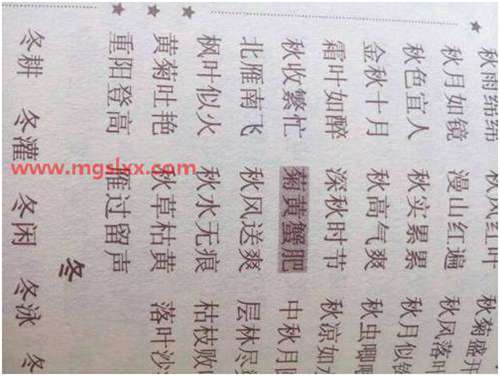 秋雨绵绵 秋风红叶 秋菊盛开
秋月如镜 漫山红遍 秋风落叶
秋色宜人 秋实累累 秋月似
金秋十月 秋高气爽 秋虫唧
霜叶如醉 深秋时节 秋凉如
秋收繁忙 菊黄蟹肥 中秋月
北雁南飞 秋风送爽 层林尽
枫叶似火 秋水无痕 枯枝败
黄菊吐艳 秋草枯黄 落叶沙
重阳登高 雁过留声
冬
冬耕 冬灌 冬闲 冬泳 冬
www.mgslxx.com